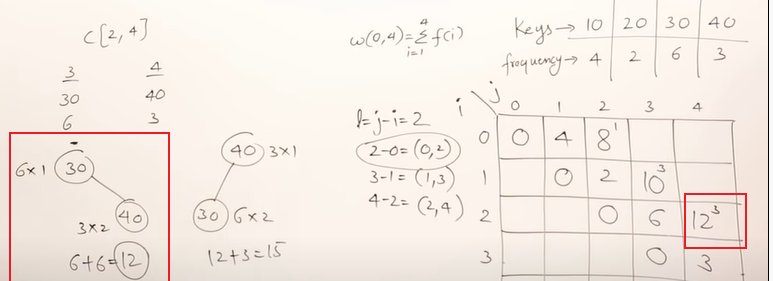 C[2,4]
3 4
30 40
6 3
6×1 30
3×2 40
6+6=12
40 3×1
30 6×2
12+3=15
w(0,4)=Σ f(i)
4
i=1
l=j-i=2
2-0=(0,2)
3-1=(1,3)
4-2=(2,4)
Keys→ 10 20 30 40
frequency→ 4 2 6 3
i j
0 1 2 3 4
0 0 4 8¹
1 0 2 10³
2 0 6 12³
3 0 3